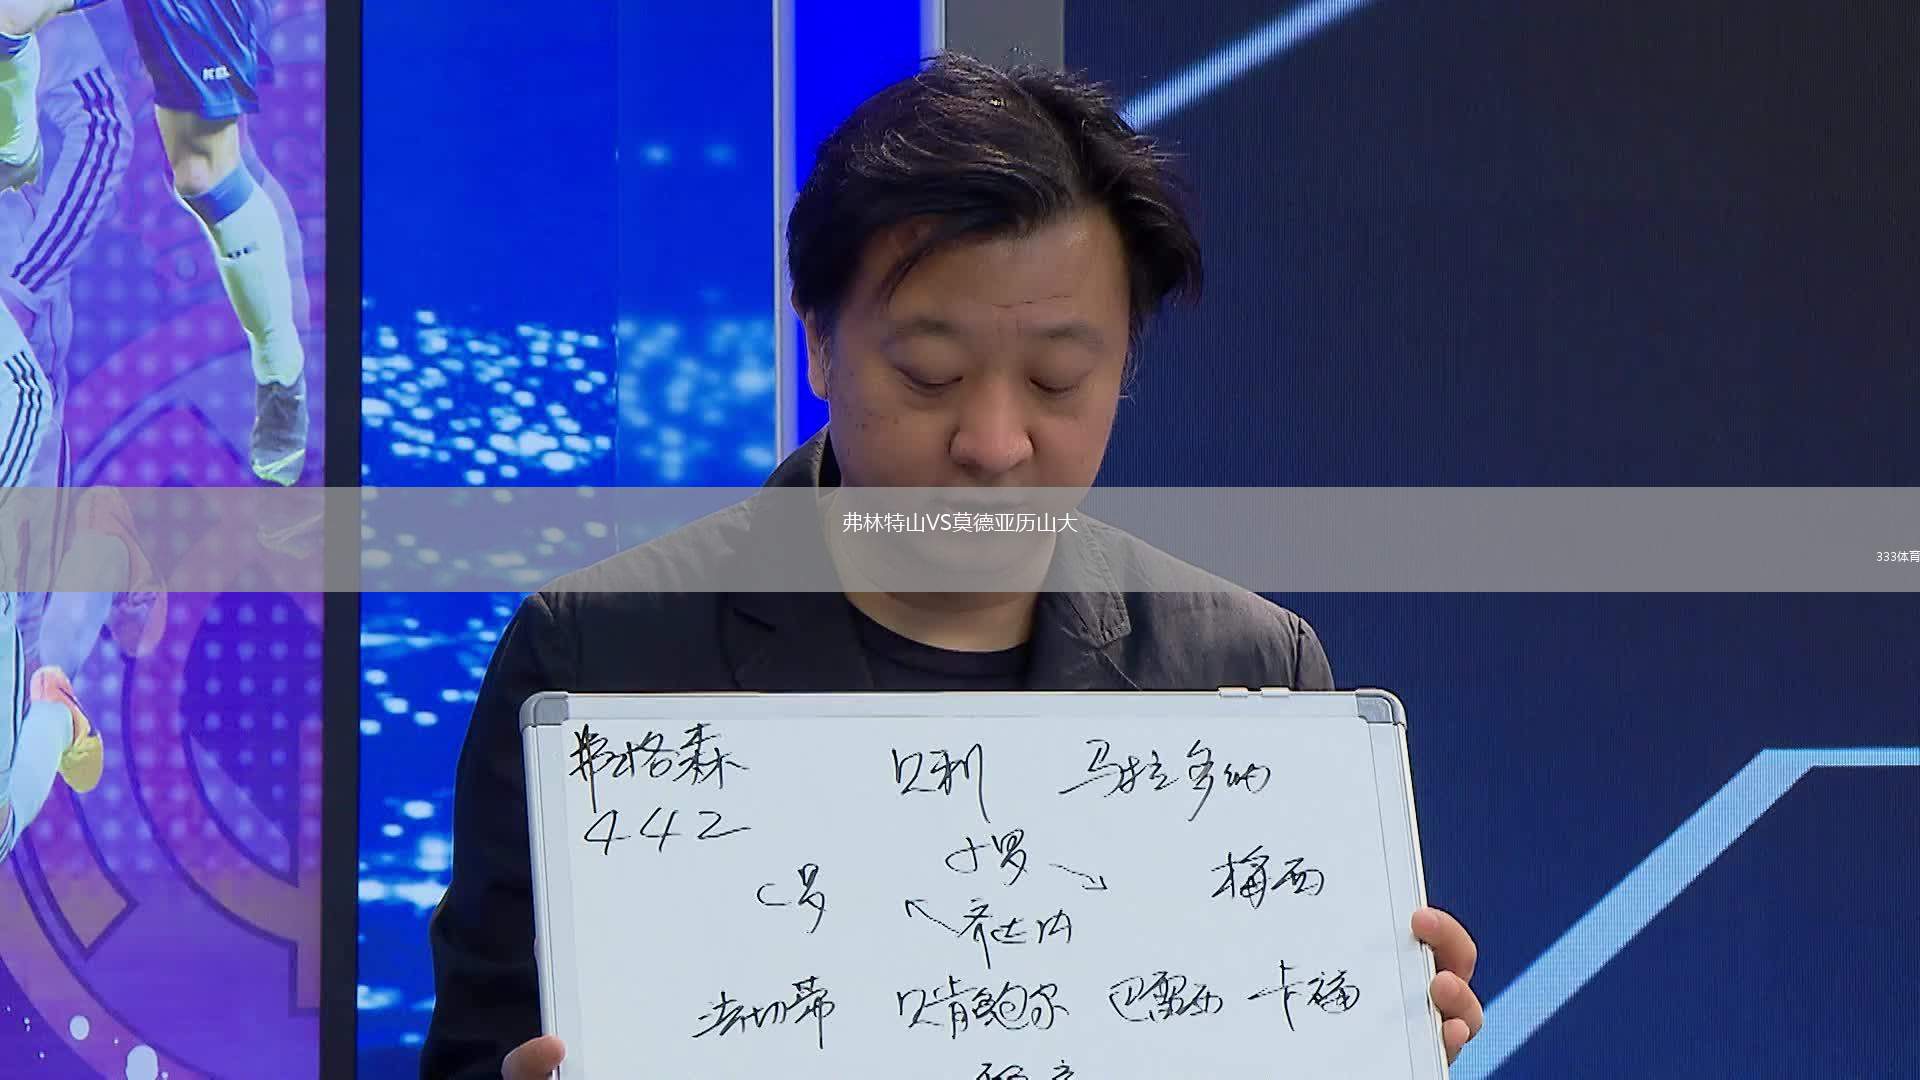 弗林特山VS莫德亚历山大
333体育
弗格森 贝利 马拉多纳
442
小罗
C罗 梅西
齐达内
法切蒂 贝肯鲍尔 巴雷西 卡福